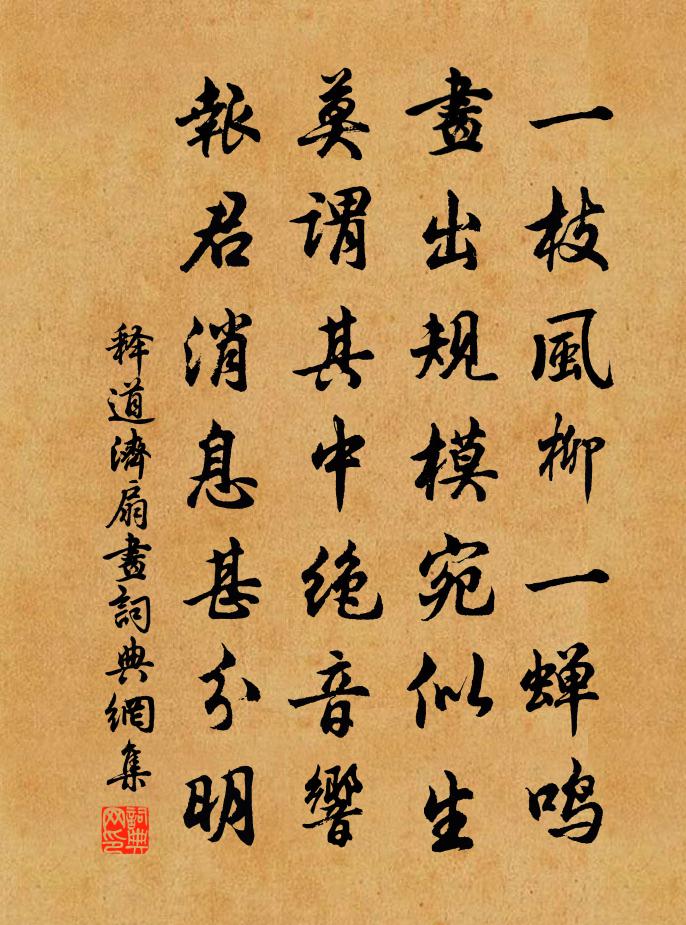 一枝風柳一蝉鸣
畫出規模宛似生
莫謂其中絶音響
報君消息甚分明
释道濟扇畫詞典網集
詞典网印